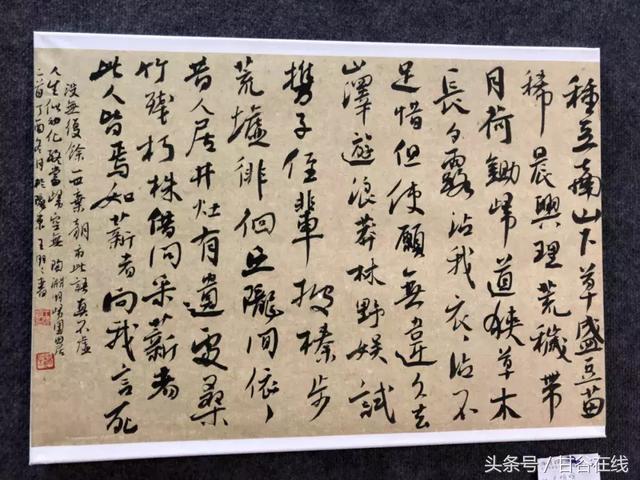 種豆南山下草盛豆苗
稀晨興理荒穢带
月荷鋤歸道狹草木
長夕露沾我衣〻沾不
足惜但使願無違久去
山澤遊浪莽林野娱試
携子侄輩披榛步
荒墟徘徊丘隴間依〻
昔人居井灶有遺處桑
竹殘朽株借問采薪者
此人皆焉如薪者向我言死
没無復餘一世棄朝市此語真不虚
人生似幻化終當歸空無 陶渊明歸園田居
二首丁酉冬月於
头条号 / 甘谷在线